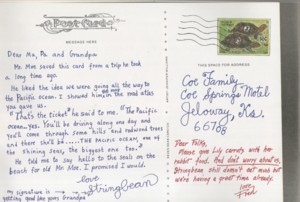 Post Card
MESSAGE HERE
THIS SPACE FOR ADDRESS
Dear Ma, Pa and Grandpa
Mr. Moe saved this card from a trip he took
a long time ago.
He liked the idea we were going all the way to the
Pacific ocean. I showed him the road atlas
you gave us.
"That's the ticket" he said to me. "The Pacific
ocean, yes. You'll be driving along one day and
you'll come through some hills and redwood trees
and there she'll be......THE PACIFIC OCEAN, one of
the shining seas, the biggest one too."
He told me to say hello to the seals on the
beach for old Mr. Moe. I promised I would.
Love
Stringbean
my signature is →
getting good like yours Grandpa
Coe Family
Coe Springs Motel
Jeloway, Ks.
66708
Dear Folks,
Please give Lily carrots with her
rabbit food. And don't worry about us.
Stringbean still doesn't eat much but
we're having a great time already.
Love,
Fred